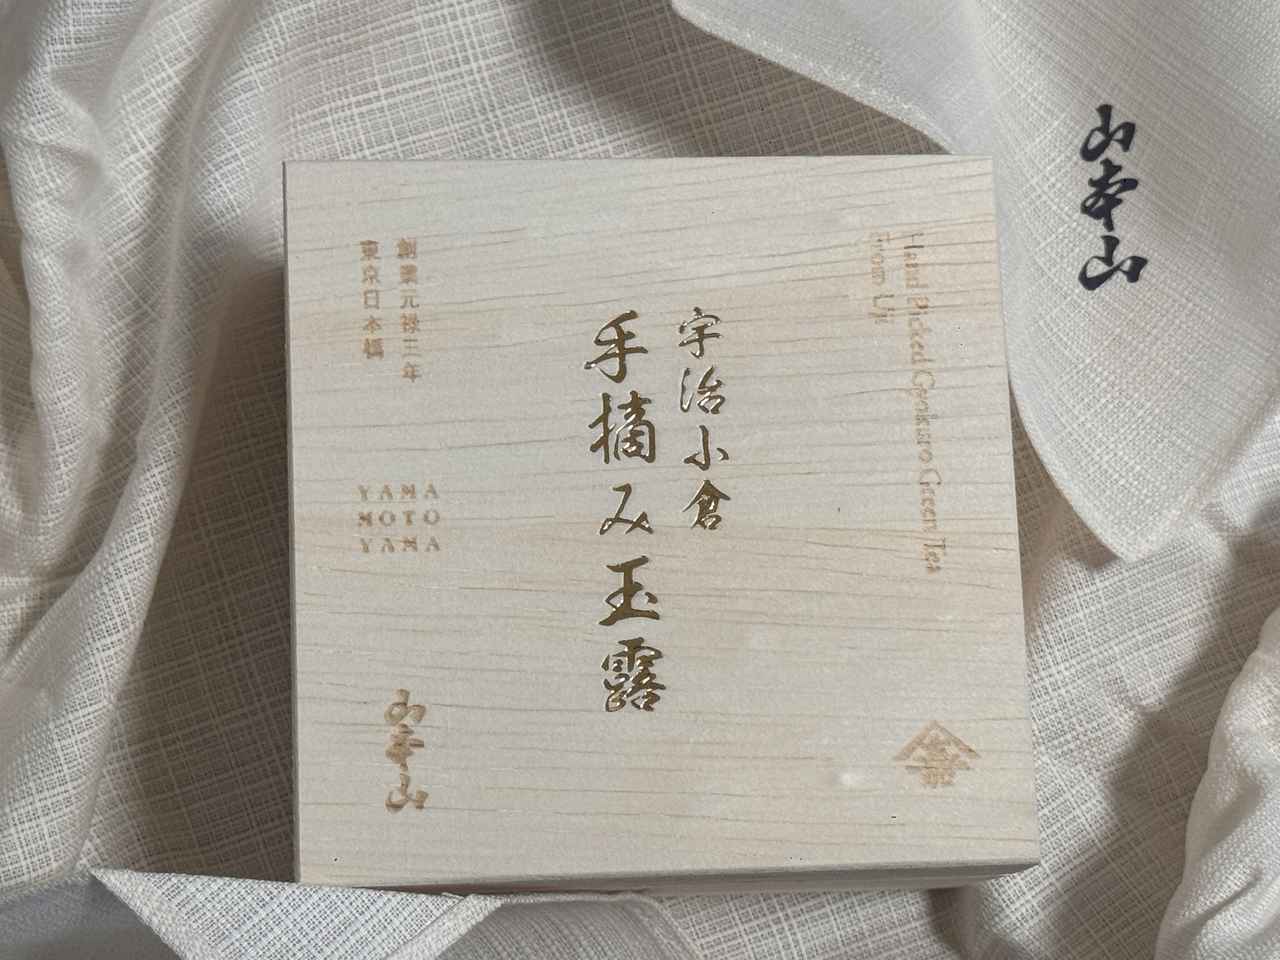 山本山
Hand Picked Gyokuro Green Tea
From Uji
宇治小倉
手摘み玉露
創業元禄三年
東京日本橋
YAMA
MOTO
YAMA
山本山